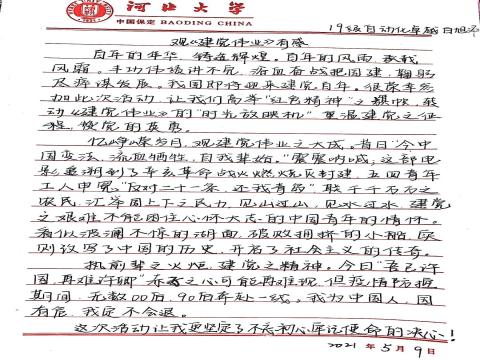 河北大学
中国保定 BAODING CHINA
19级自动化卓越白旭
观《建党伟业》有感
百年的年华，铸造辉煌。百年的风雨，承载
风霜。丰功伟绩讲不尽，浴血奋战把国建，鞠躬
尽瘁谋发展。我国即将迎来建党百年。很荣幸参
加此次活动，让我们高举“红色精神”之旗帜，转
动《建党伟业》的“时光放映机”重温建党之征
程，缅党的英勇。
忆峥嵘岁月，观建党伟业之大成。昔日“今中
国变法，流血牺牲，自我辈始。”震震呐喊，这部电
影追溯到了辛亥革命战火燃烧灭封建，五四青年
工人中冤“反对二十一条，还我青岛”联千千万万之
农民，汇举国上下之民力，见山过山，见水过水，建党
之艰难不能困住心怀大志的中国青年的情怀。
看似波澜不惊的湖面，破败拥挤的小船，实
则改写了中国的历史，开启了社会主义的传奇。
执前辈之火炬，建党之精神。今日“吾已许
国，再难许卿”赤系之心可能再难现，但疫情防控
期间，无数00后，90后奔赴一线。我为中国人，国
有危，我定不会退。
这次活动让我更坚定了不忘初心牢记使命的决心！
2021年5月9日